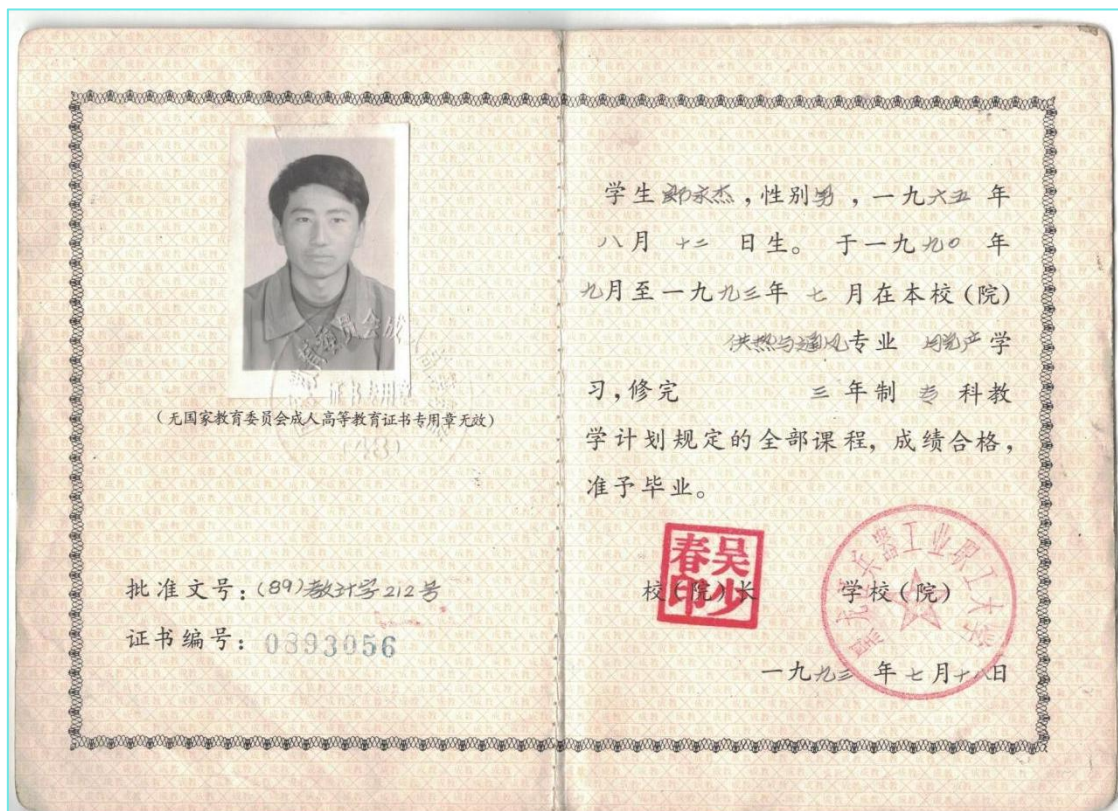 (无国家教育委员会成人高等教育证书专用章无效)
批准文号：(89)教计字212号
证书编号：0893056
学生 永杰，性别男，一九六五年
八月十二日生。于一九九〇年
九月至一九九三年七月在本校(院)
供热与通风专业 脱产学
习，修完 三年制 专科教
学计划规定的全部课程，成绩合格，
准予毕业。
吴少春印
校(院)长 学校(院)
兵器工业职工大学
一九九三年七月十八日